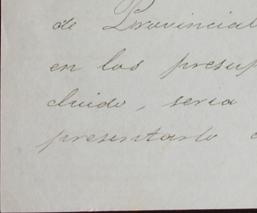 de Provincial
en los presup
cluido, seria
presentarlo